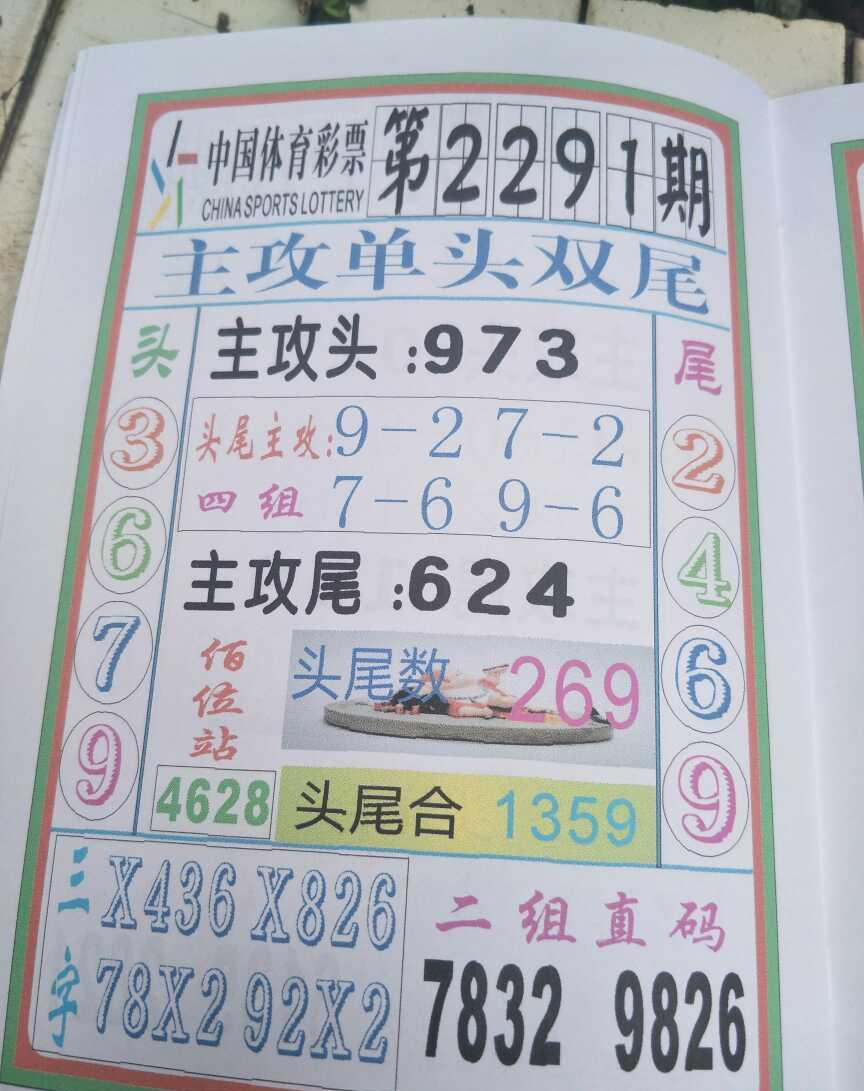 中国体育彩票 第2291期
CHINA SPORTS LOTTERY
主攻单头双尾
头 主攻头:973 尾
3 头尾主攻:9-2 7-2 2
四组 7-6 9-6
6 主攻尾:624 4
7 佰位站 头尾数 269 6
9 4628 头尾合 1359 9
三字 X436 X826
78X2 92X2
二组直码
7832 9826